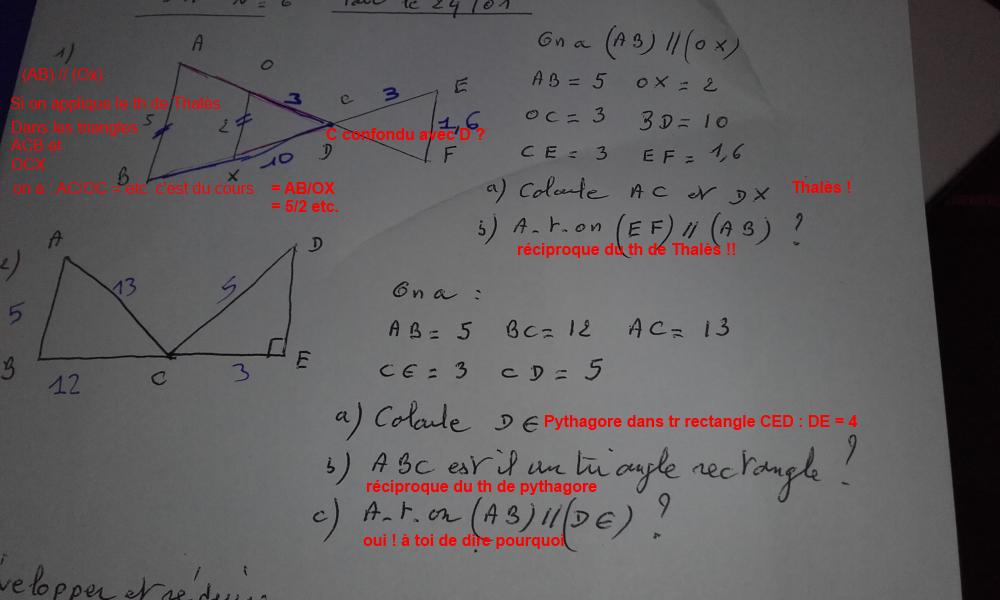 Pour le 24/01
1)
A
O
(AB) // (Ox)
On a (AB) // (OX)
AB = 5 OX = 2
3
C
3
E
Si on applique le th de Thalès
OC = 3 BD = 10
5
2
1,6
Dans les triangles
ACB et
OCX
C confondu avec D ?
D
F
10
CE = 3 EF = 1,6
B
X
on a AC/OC = etc. c'est du cours
= AB/OX
= 5/2 etc.
a) Calcule AC et DX
Thalès !
b) A-t-on (EF) // (AB) ?
réciproque du th de Thalès !!
2)
A
D
13
5
On a :
5
AB = 5 BC = 12 AC = 13
B
12
C
3
E
CE = 3 CD = 5
a) Calcule DE
Pythagore dans tr rectangle CED : DE = 4
b) ABC est il un triangle rectangle ?
réciproque du th de pythagore
c) A-t-on (AB) // (DE) ?
oui ! à toi de dire pourquoi
velopper et réduire